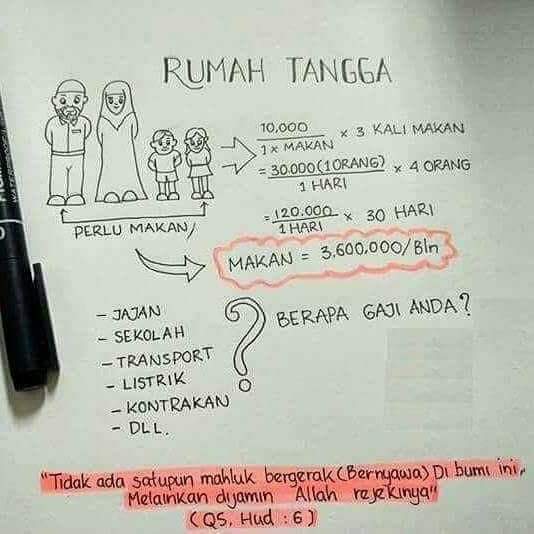 RUMAH TANGGA
10,000 × 3 KALI MAKAN
1 x MAKAN
= 30.000 (1 ORANG) × 4 ORANG
1 HARI
= 120.000 × 30 HARI
1 HARI
PERLU MAKAN
MAKAN = 3,600,000/Bln
- JAJAN
- SEKOLAH
- TRANSPORT
- LISTRIK
- KONTRAKAN
- DLL.
?
BERAPA GAJI ANDA?
"Tidak ada satupun mahluk bergerak (Bernyawa) Di bumi ini,
Melainkan dijamin Allah rejekinya"
(QS, Hud : 6)